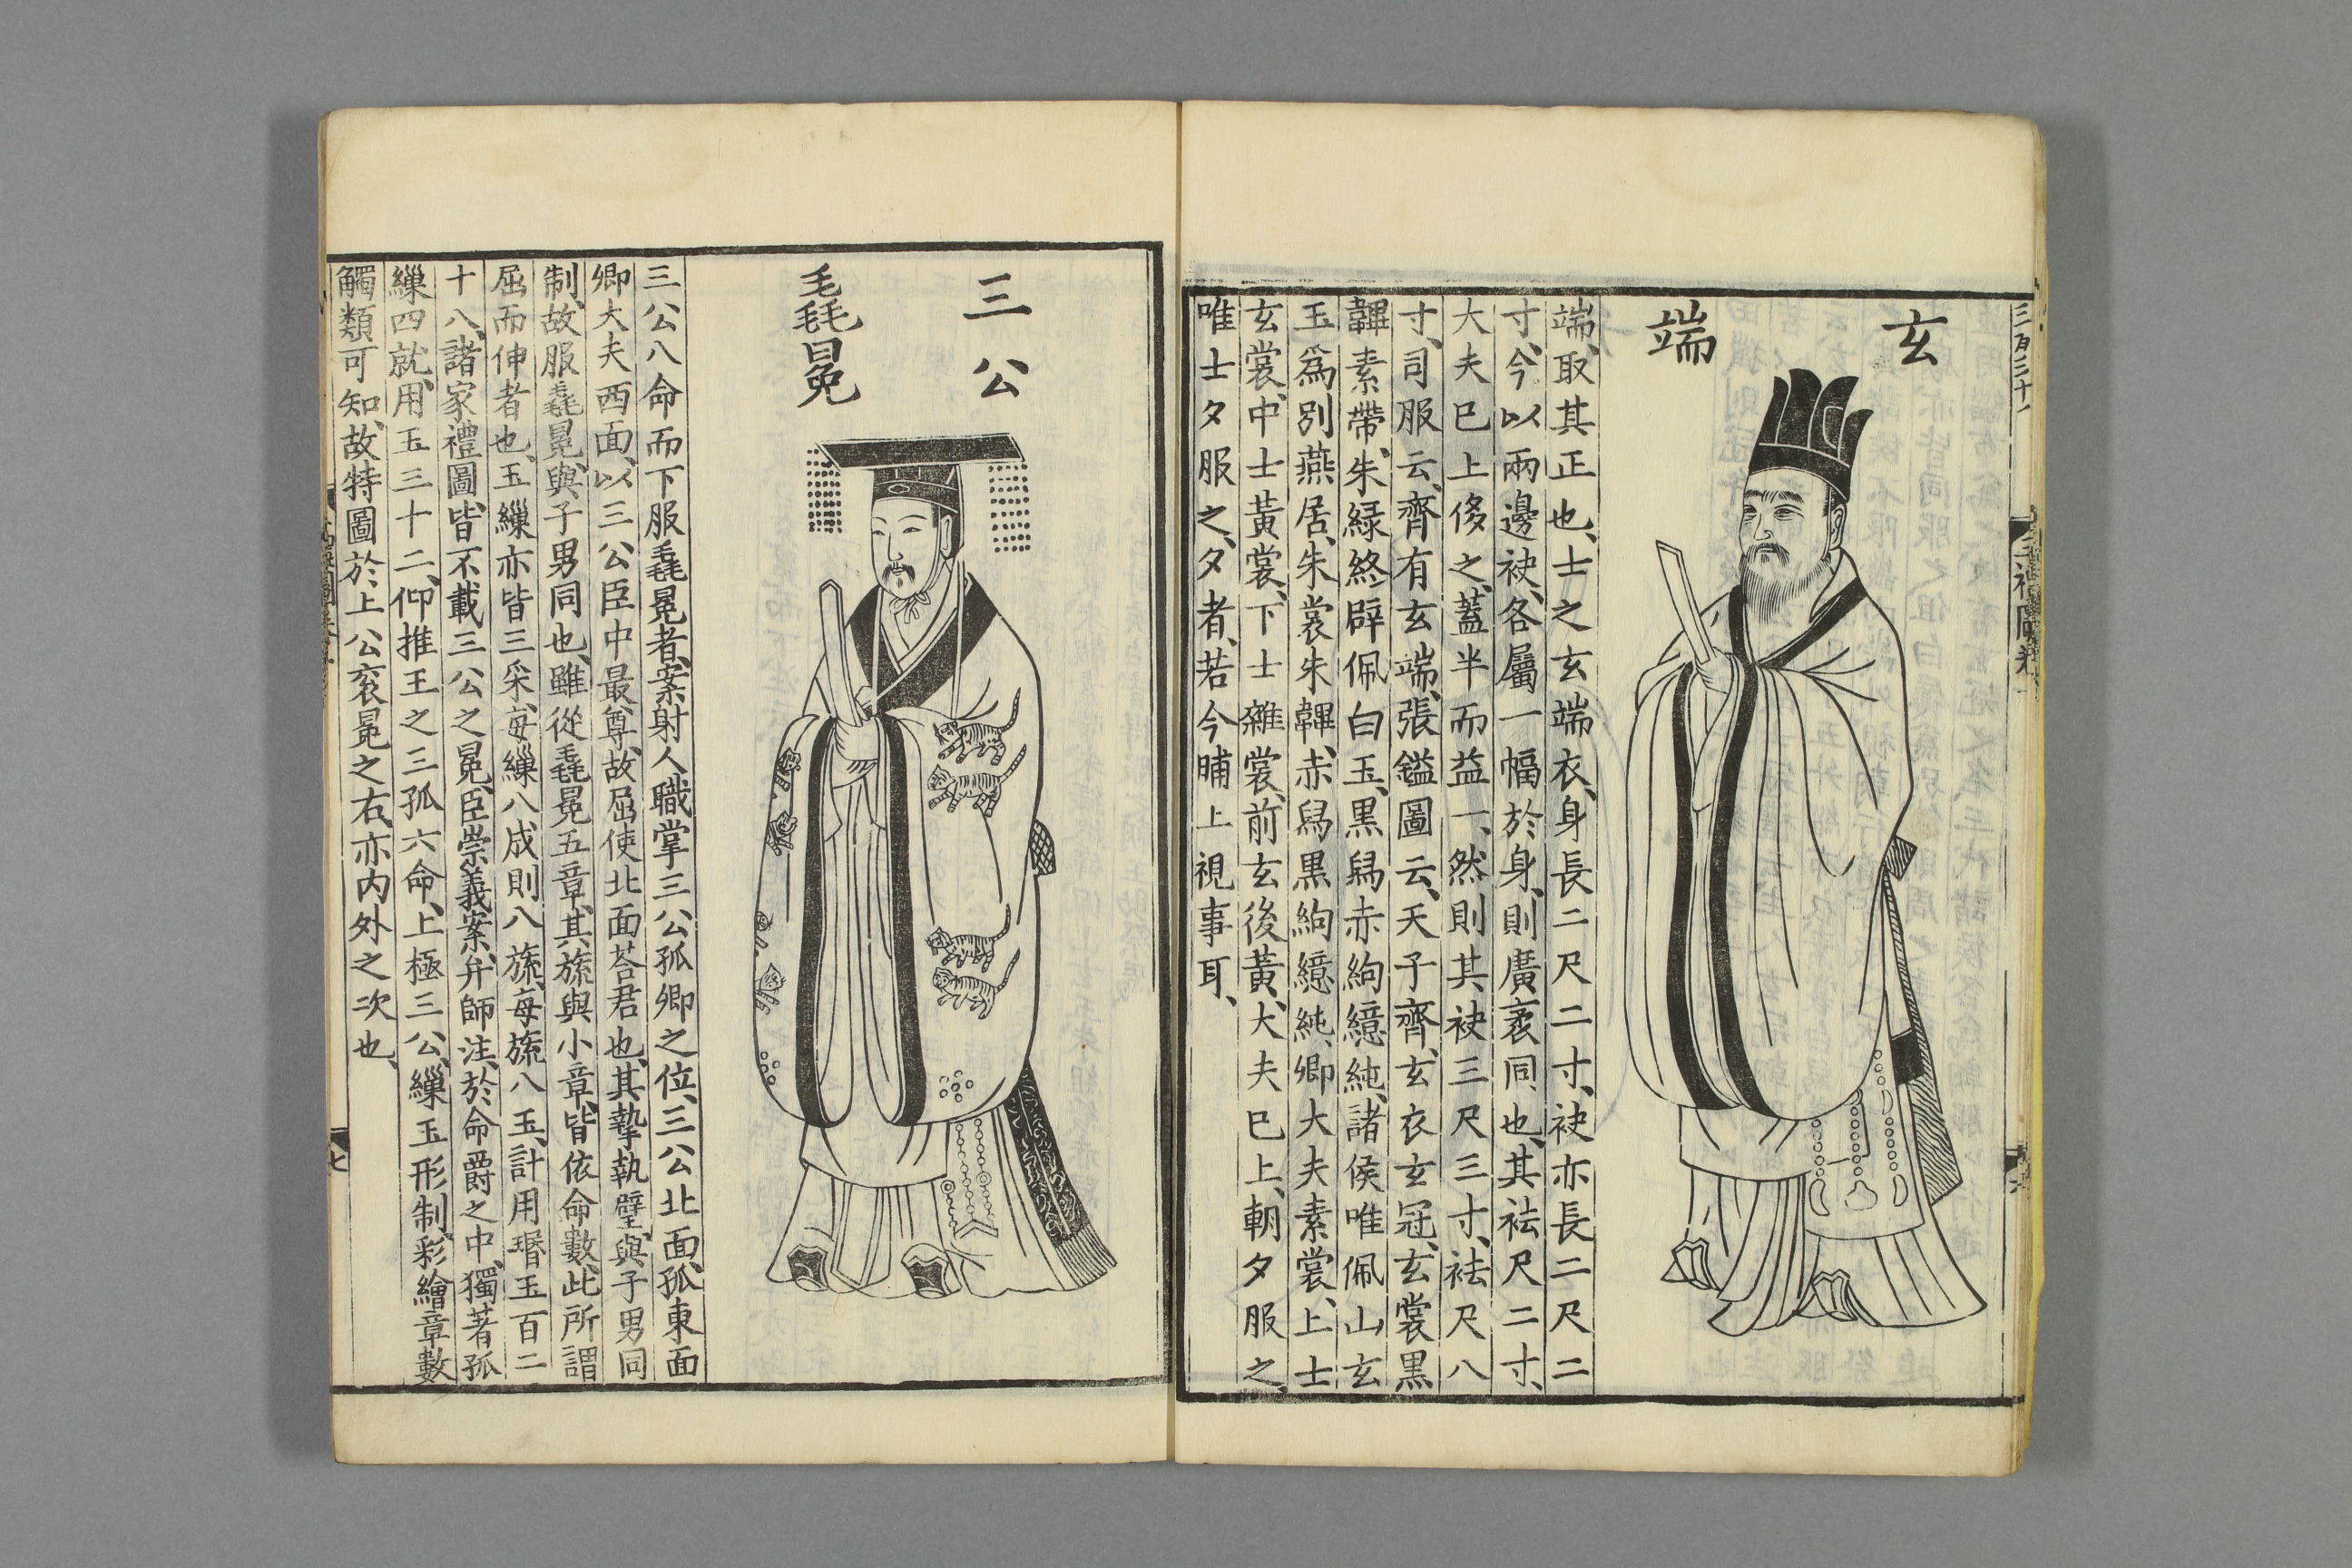 玄端
端、取其正也、士之玄端衣、身長二尺二寸、袂亦長二尺二
寸、今以兩邊袂、各屬一幅於身、則廣袤同也、其袪尺二寸、
大夫已上侈之、蓋半而益一、然則其袂三尺三寸、袪尺八
寸、司服云、齊有玄端、張鎰圖云、天子齊、玄衣玄冠、玄裳黑
韠、素帶、朱綠終辟、佩白玉、黑舄赤絇繶純、諸侯唯佩山玄
玉爲別、燕居、朱裳朱韠、赤舄黑絇繶純、卿大夫素裳、上士
玄裳、中士黃裳、下士雜裳、前玄後黃、大夫已上、朝夕服之、
唯士夕服之、夕者、若今晡上視事耳、
三公
毳冕
三公八命而下服毳冕者、案射人職掌三公孤卿之位、三公北面、孤東面
卿大夫西面、以三公臣中最尊、故屈使北面荅君也、其摯執璧、與子男同
制、故服毳冕、與子男同也、雖從毳冕五章、其旒與小章、皆依命數、此所謂
屈而伸者也、玉繅亦皆三采、每繅八成則八旒、每旒八玉、計用瑉玉百二
十八、諸家禮圖、皆不載三公之冕、臣崇義案、弁師注、於命爵之中、獨著孤
繅四就、用玉三十二、仰推王之三孤六命、上極三公、繅玉形制、彩繪章數
觸類可知、故特圖於上公袞冕之右、亦内外之次也、